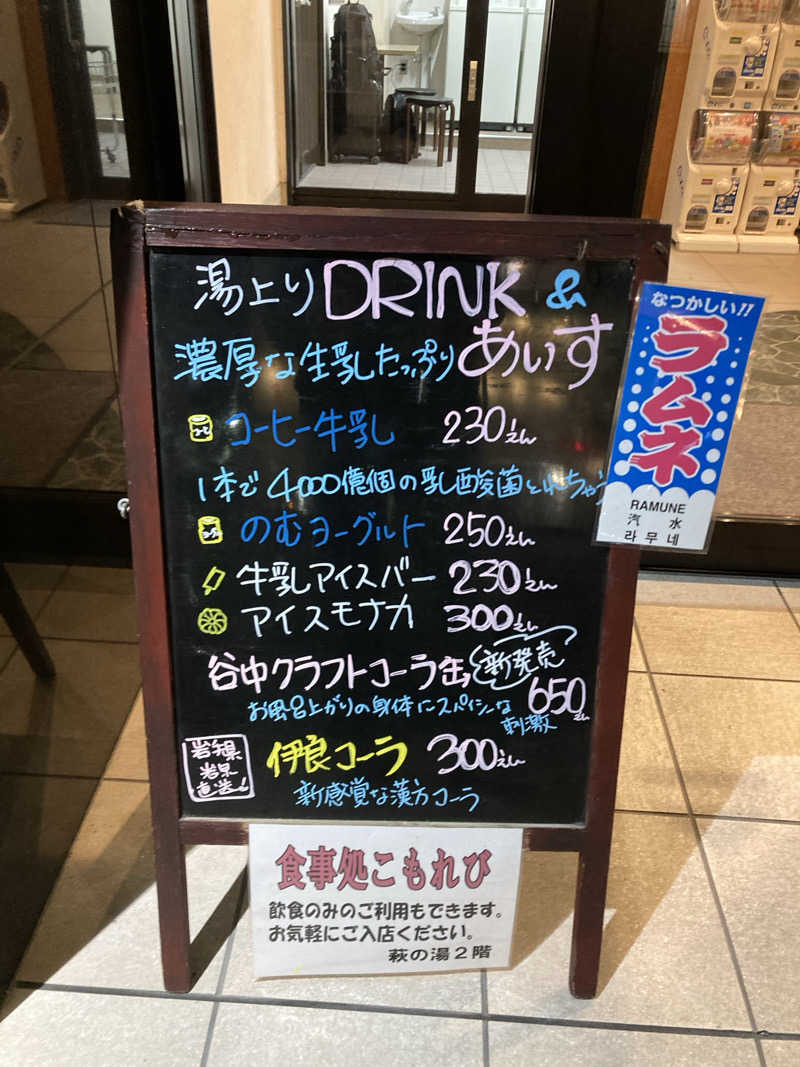 湯上り DRINK &
濃厚な生乳たっぷり あいす
コーヒー牛乳 230えん
1本で4000億個の乳酸菌とれちゃう
のむヨーグルト 250えん
牛乳アイスバー 230えん
アイスモナカ 300えん
谷中クラフトコーラ缶 新発売
650えん
お風呂上がりの身体にスパイシーな
刺激
岩手県
岩泉
直送!
伊良コーラ 300えん
新感覚な漢方コーラ
なつかしい!!
ラムネ
RAMUNE
汽水
라무네
食事処こもれび
飲食のみのご利用もできます。
お気軽にご入店ください。
萩の湯2階